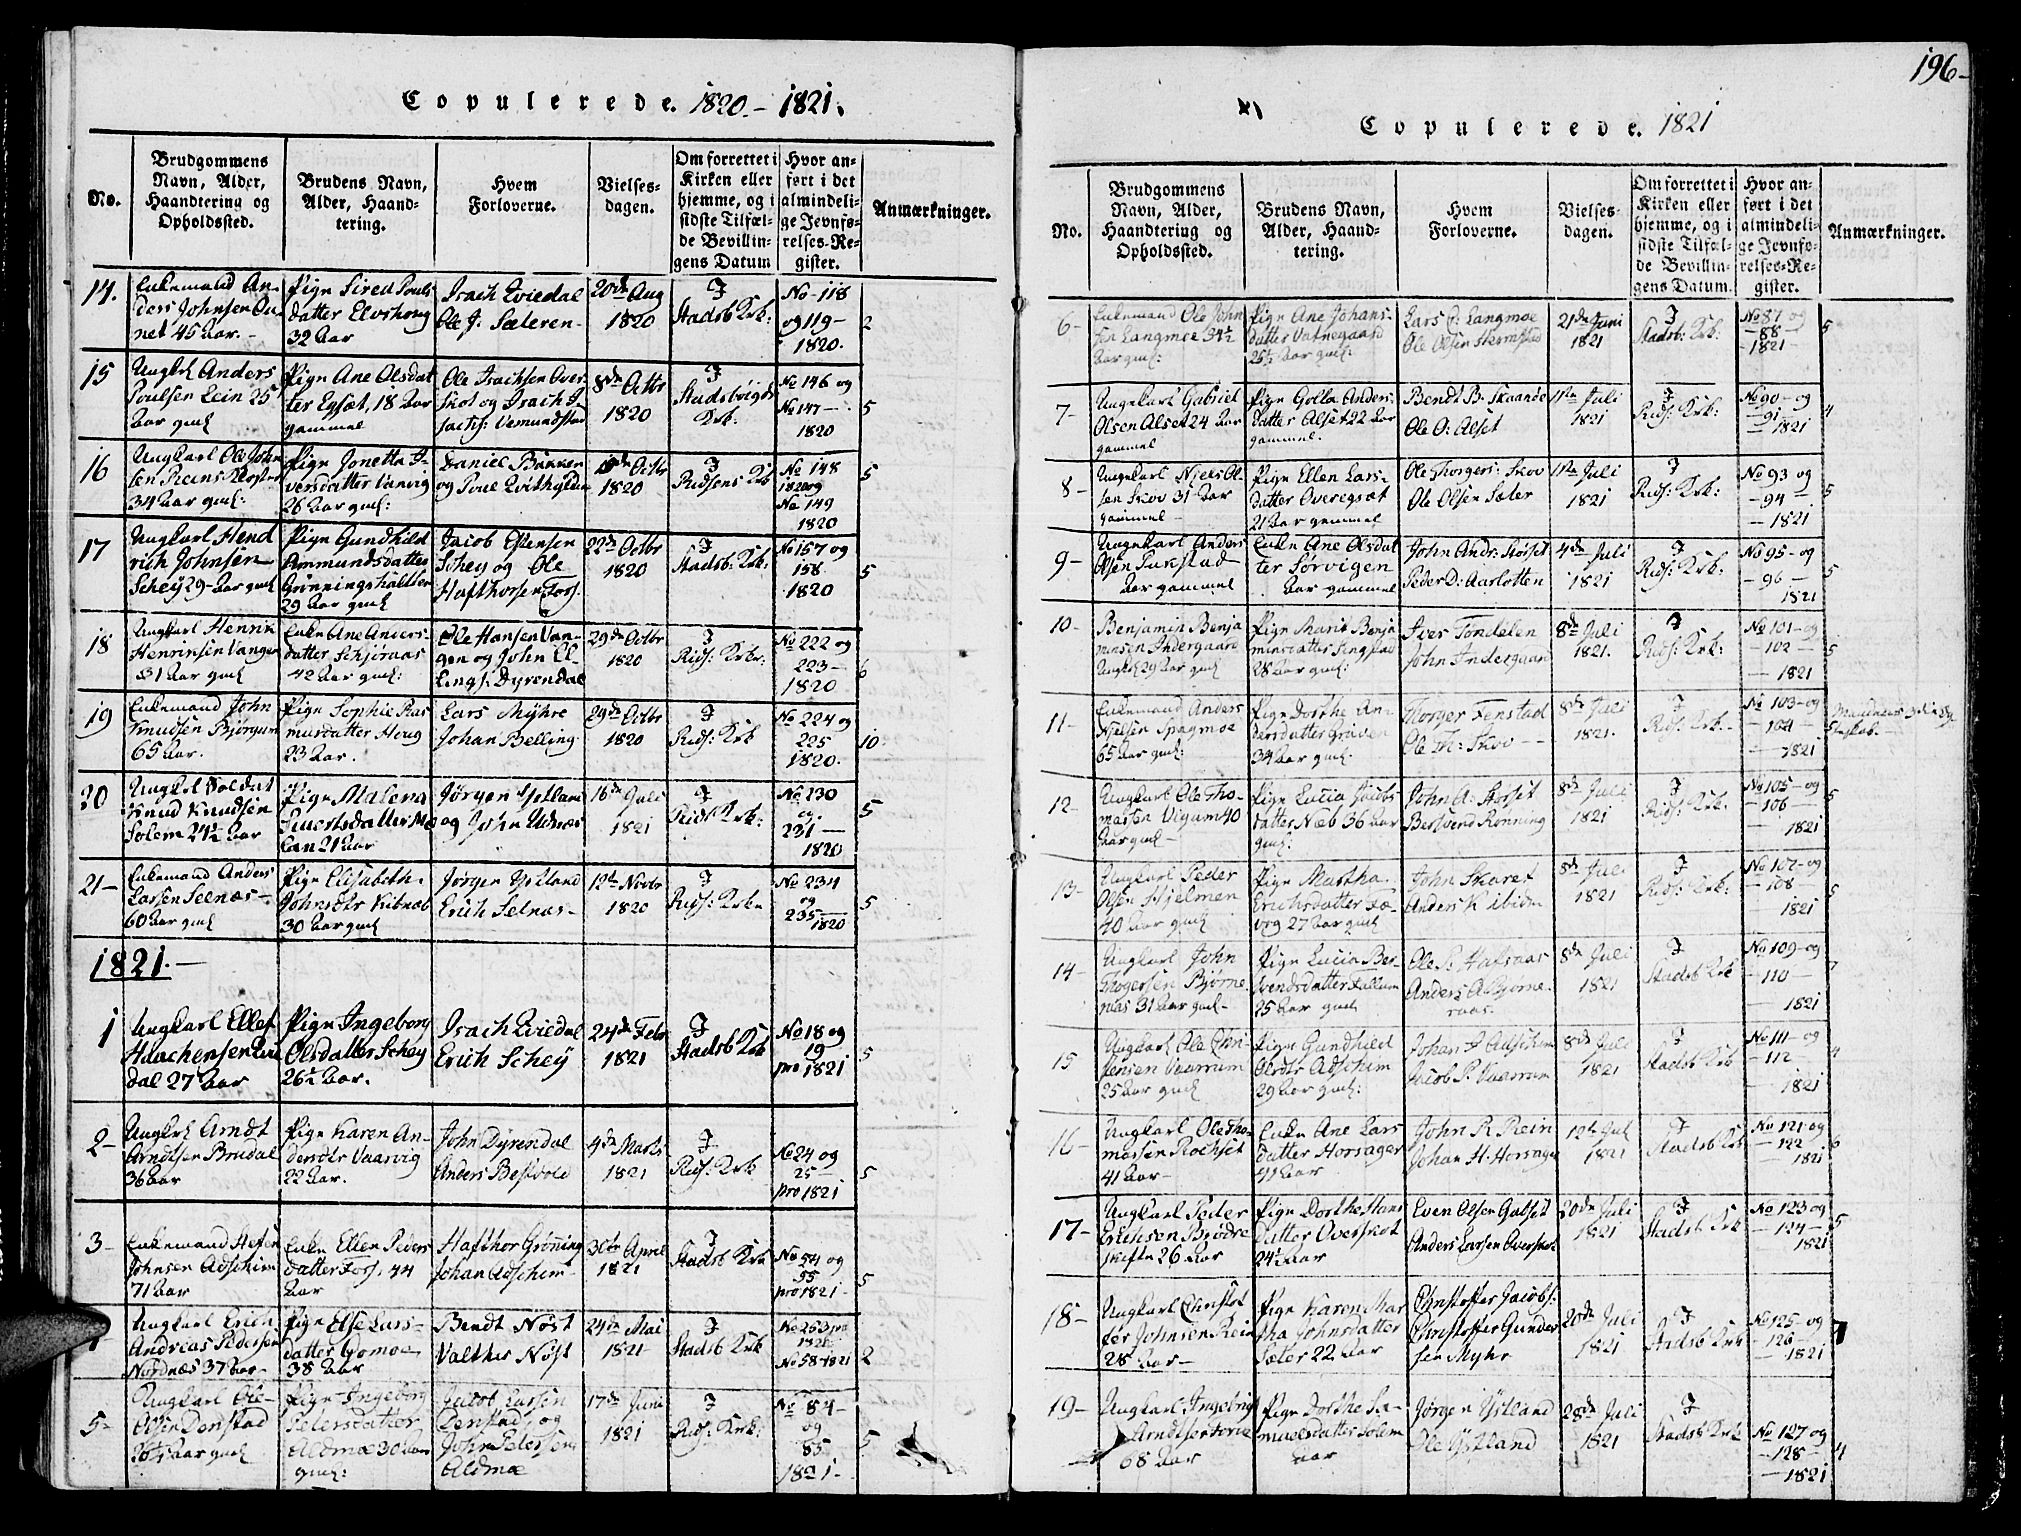 Copulerede. 1820.- 1821.
No.
Brudgommens
Navn, Alder,
Haandtering og
Opholdssted.
Brudens Navn,
Alder, Haand-
tering.
Hvem
Forloverne.
Vielses-
dagen.
Om forrettet i
Kirken eller
hjemme, og i
sidste Tilfæl-
de Bevillin-
gens Datum
Hvor an-
ført i det
almindeli-
ge Jevnfø-
relses-Re-
gister.
Anmærkninger.
14.
Enkemand An-
ders Johnsen
net 45 Aar.-
Pige Sired Pouls
datter Elvshoug
32 Aar
Isach Qviedal
Ole J. Sæteren-
20de Aug
1820
I
Stadsb Krk:
No-118
og 119-
1820.
2
15
Ungk Anders
Poulsen Lein 25
Aar gml
Pige Ane Olsdat
ter Egset, 18 Aar
gammel
Ole Isachsen Over-
skot og Isach I-
sachs: Vemundstad
8de Octbr
1820
I
Stadsbøigds
Krk.
No 146 og
No 147-
1820
5
16
Ungkarl Ole John
sen Reins Kloster
34 Aar gml:
Pige Jonetta I-
versdatter Vanvig
26 Aar gml:
Daniel Bakken
og Poul Qvithylden
Octbr
1820
I
Ridsens Krk
No 148
1820 og
No 149
1820
5
17
Ungkarl Hend
rich Johnsen
Schey 29- Aar gml
Pige Gundhild
Ammundsdatter
Grønningshaltten
29 Aar gml
Jacob Estensen
Schey og Ole
Hafthorsen Fors.
22de Octbr
1820
I
Stadsb: Krk:
No 157 og
158
1820
5
18
Ungkarl Henrik
Henriksen Vangen
31 Aar gml
Enke Ane Anders-
datter Schjøraas
42 Aar gml:
Ole Hansen Van-
gen og John El-
lings: Dyrendal
29de Octbr
1820
I
Rids: Krk:
No 222 og
223-
1820
6
19
Enkemand John
Knudsen Bjørgum
65 Aar.
Pige Sophie Ras
musdatter Houg
23 Aar.
Lars Myhre
Johan Belling
29de Octbr
1820
I
Rids: Krk
No 224 og
225
1820.
10
20
Ungkl Soldat
Knud Knudsen
Solem 24½ Aar
Pige Malena
Siuertsdatter
21 Aar
Jørgen Ystland
og John Udnæs
16de Juli
1821
I
Rids Krk:
No 230
og
231-
1820
5
21-
Enkemand Anders
Larsen Selnæs-
60 Aar gml
Pige Elisabeth
Johnsdtr Kibnæb
30 Aar gml
Jørgen Ystland
Erich Selnæs-
12te Novbr
1820
I
Rids: Krk-
No 234
og
235-
1820
5
1821.-
1
Ungkarl Ellef
Haachensen Qvie
dal 27 Aar
Pige Ingeborg
Olsdatter Schey
26½ Aar.
Isach Qviedal
Erich Scheÿ
24de Febr
1821
I
Stadsb Krk
No 18 og
19
pro 1821
5
2-
Ungk Arndt
Arndtsen Brudal
36 Aar
Pige Karen An-
dersdtr Vaarvig
22 Aar.
John Dyrendal
Anders Bestvold
4de Marts
1821
I
Rids: Krk
No 24 og
25
pro 1821
5
3-
Enkemand Steffen
Johnsen Adscheim
71 Aar
Enke Ellen Peders
datter Fors, 44
Aar
Hafthor Grønning
Johan Adscheim-
30te April
1821
I
Stadsb Krk
No 54 og
55
pro 1821-
5
Ungkarl Erich
Andreas Pedersen
Nordnæs 37 Aar-
Pige Else Lars-
datter Gomoe
38 Aar
Bendt Nøst
Valther Nøst
24de Mai
1821-
I
Stadsb Krk
No 253 pro
1820
No 58-1821
2
5-
Ungkarl Ole-
Olsen Denstad
26½ Aar gml
Pige Ingeborg
Petersdatter
Aldmæ 30 Aar
gml:
Jacob Larsen
Denstad, og
John Petersen
Aldmæ
17de Juni
1821
I
Rids: Krk:
No 84-
og
85
1821-
5
196-
Copulerede. 1821
No.
Brudgommens
Navn, Alder,
Haandtering og
Opholdssted.
Brudens Navn,
Alder, Haand-
tering.
Hvem
Forloverne.
Vielses-
dagen.
Om forrettet i
Kirken eller
hjemme, og i
sidste Tilfæl-
de Bevillin-
gens Datum.
Hvor an-
ført i det
almindeli-
ge Jevnfø-
relses-Re-
gister.
Anmærkninger.
6-
Enkemand Ole John
sen Langmoe 34½
Aar gml:
Pige Ane Johans-
datter Vatnegaard
25½ Aar gml:
Lars Langmoe
Ole Olsen
21de Juni
1821
I
Stadsb: Krk:
No 87 og
-88-
-1821-
5
7-
Ungkarl Gabriel
Olsen Alset 24 Aar
gammel
Pige Golla Anders-
datter Alset 22 Aar
gammel.
Bendt B: Skaande
Ole O: Alset
11te Juli
1821
I
Rids: Krk:
No 90- og
-91-
-1821
4
8-
Ungkarl Niels Ol-
sen Skov 31 Aar
gammel-
Pige Ellen Lars-
datter Overegsæt
21 Aar gammel
Ole Thorgers: Skov
Ole Olsen Sæter
11te Juli
1821
I
Rids: Krk:
No 93 og
-94-
-1821
5
9-
Ungkarl Anders
Olsen
Aar gammel
Enke Ane Olsdat
ter Sørvigen
Aar gammel
John Andr: Støset
Peder D: Aarlotten
4de Juli
1821
I
Rids: Krk:
No 95- og
-96-
1821
5
10-
Benjamin Benja
minsen Indergaard
Ungkl 29 Aar gml
Pige Marit Benja
minsdatter Singstad
28 Aar gml:
Iver Tøndelen
John Indergaard
8de Juli
1821.
I
Rids: Krk:
No 101- og
-102-
-1821
5
11-
Enkemand Anders
Nielsen Spagmoe
65 Aar gml:
Pige Dorthe An-
dersdatter Graven
34 Aar gml:
Thorger Fenstad
Ole Th: Skov-
8de Juli
1821.
I
Rids: Krk-
No 103- og
-104-
-1821
12-
Ungkarl Ole Tho-
masen Vigum 40
Aar gml-
Pige Lucia Jacobs
datter Næb 36 Aar
gml:
John A: Støset
Berhvend Rønning
8de Juli
1821
I
Rids: Krk.
No 105- og
-106-
1821
5
13-
Ungkarl Peder
Olsen Hjelmen
40 Aar gml
Pige Martha
Erichsdatter Fæ-
vog 27 Aar gml
John Skaret
Anders K ibidm
8de Juli
1821
I
Rids: Krk:
No 107- og
-108-
1821
5
14-
Ungkarl John
Thogersen Bjørne-
næs 31 Aar gml-
Pige Lucia Ber-
hvendsdatter Fallum
25 Aar gml
Ole P: Hafsaas
Anders A Bjørne-
raas.
8de Juli
1821
I
Stadsb: Krk
No 109- og
-110-
1821
7
15
Ungkarl Ole Chri-
stensen Vaarum
25 Aar gml
Pige Gundhild
Olsdtr Adscheim
29 Aar gml:
Johan J Adscheim
Jacob P. Vaarrum
8de Juli
1821
I
Stadsb Krk
No 111- og
-112-
1821
4
16-
Ungkarl Ole Tho-
mesen Rochset
41 Aar-
Enke Ane Lars
datter Horsager
41 Aar
John R Rein
Johan H: Horsager
12te Jul
1821
I
Stadsb Krk
No 121- og
-122-
1821
6
17-
Ungkarl Peder
Erichsen Brødre
skifte 26 Aar
Pige Dorthe Hans
datter Overskot
24½ Aar
Even Olsen Galset
Anders Larsen Overskot
20de Juli
1821
I
Stadsb Krk
No 123- og
-124-
1821
5
18-
Ungkarl Christof
fer Johnsen Rein
28 Aar-
Pige Karen Mar
tha Johnsdatter
Sæter 22 Aar
Christoffer Jacobs:
Christoffer Gunder
sen Myhr
20de Juli
1821
I
Stadsb Krk
No 125- og
-126-
-1821
7
19-
Ungkarl Ingebrig
Arndtsen
68 Aar
Pige Dorthe Sa-
muelsdatter Solem
Aar
Jørgen Ystland
Ole Ystland
28de Juli
1821
I
Stadsb Krk
No 127 og
-128-
-1821
4